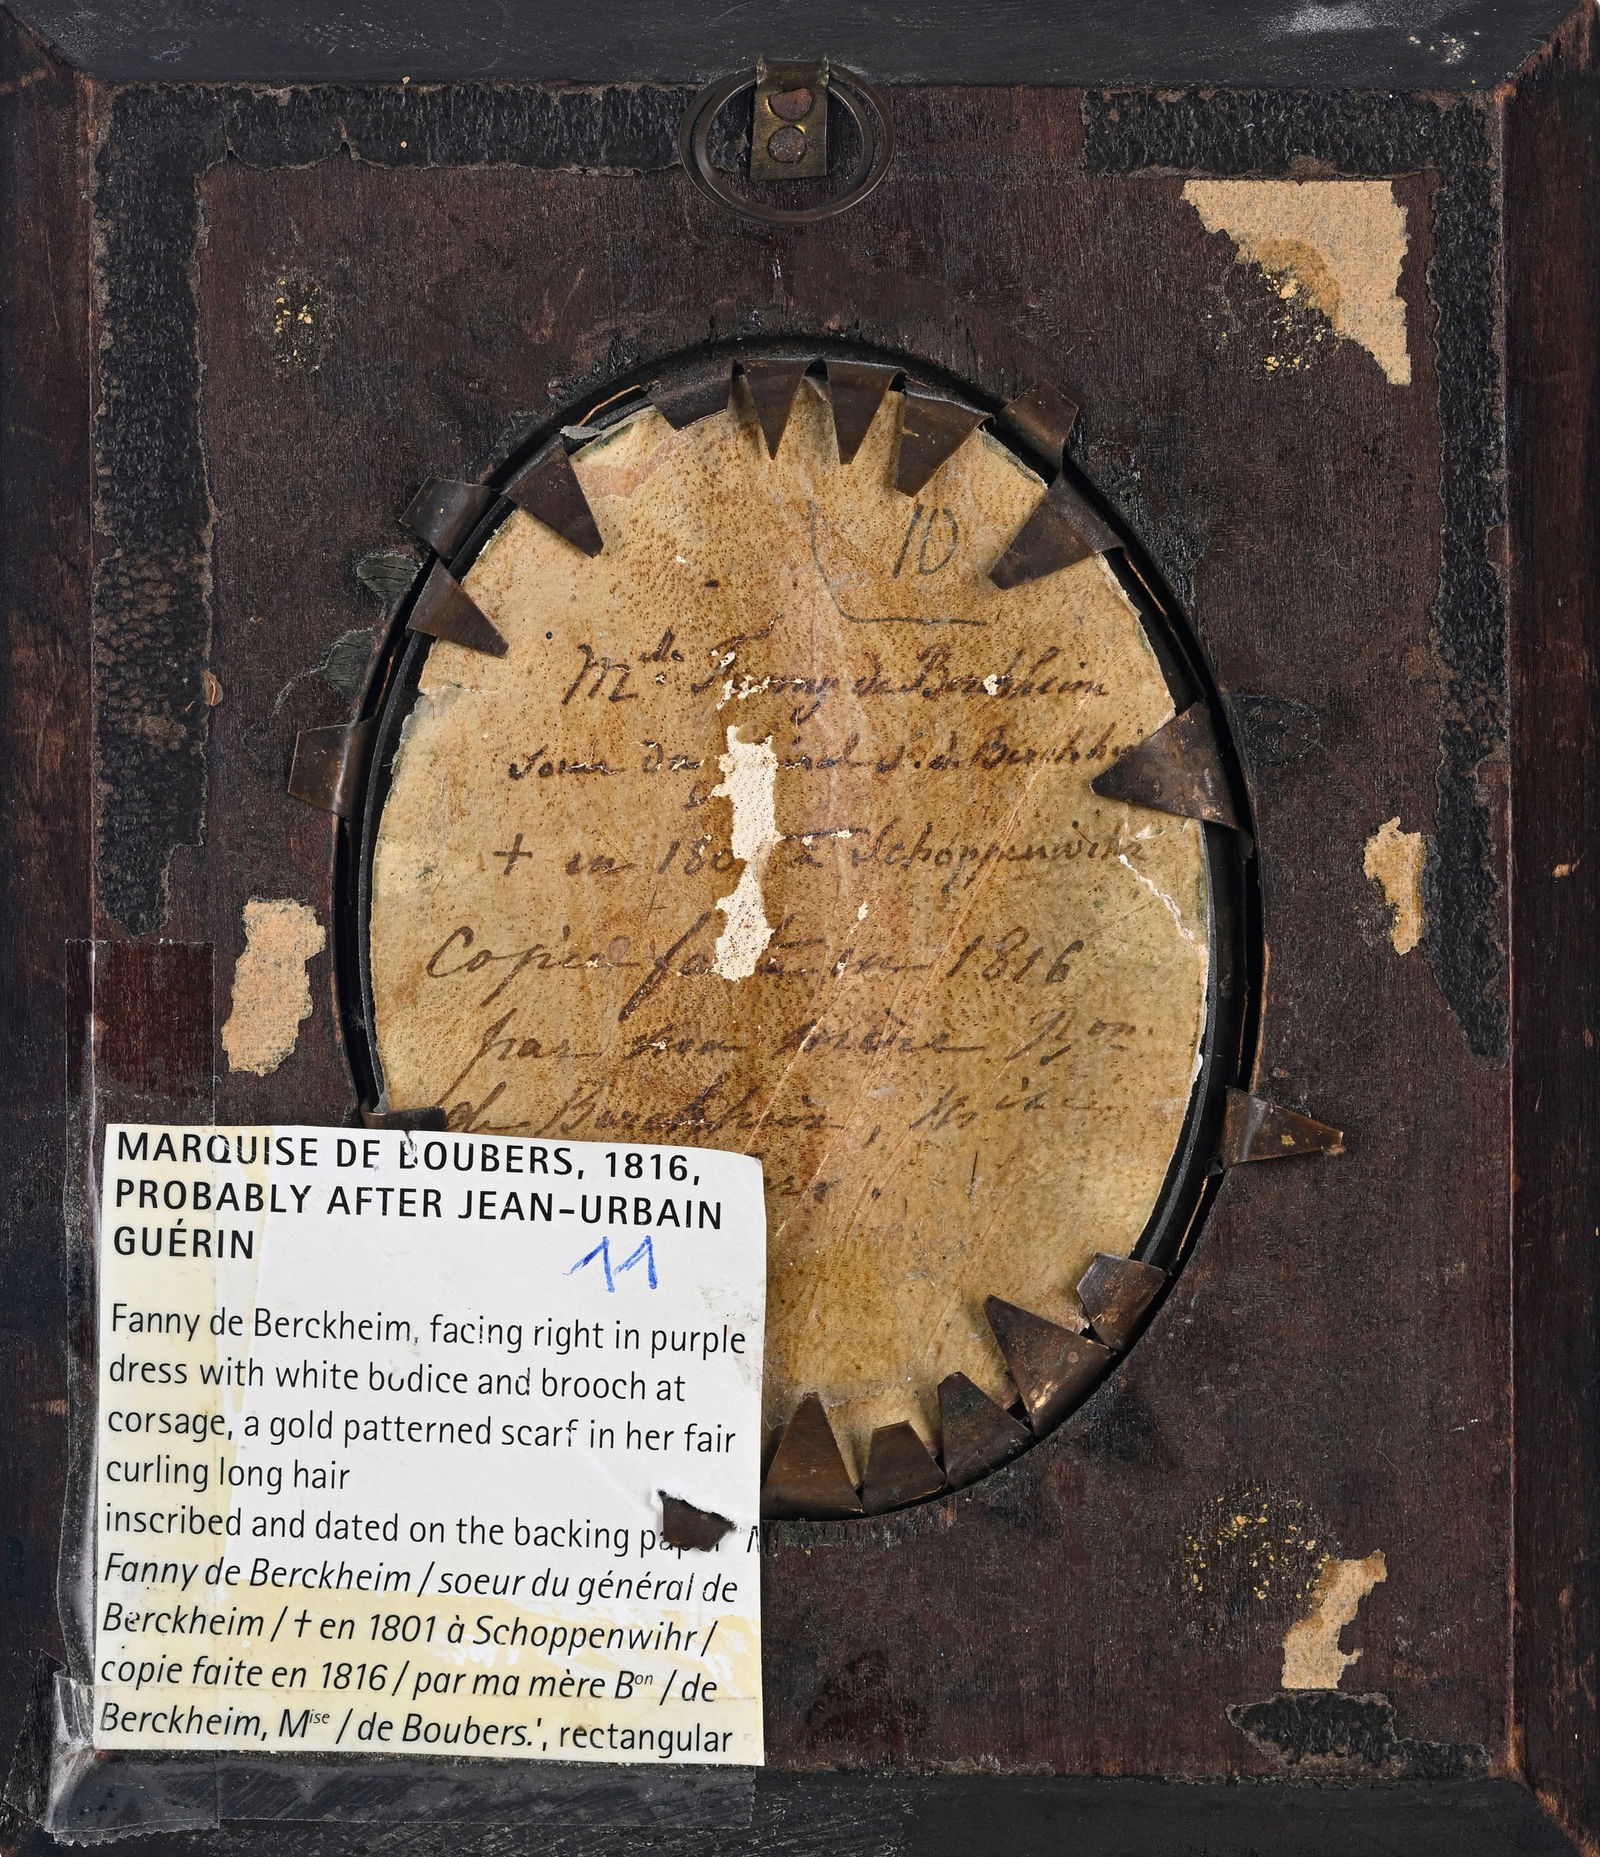 10
Mlle Fanny de Berckheim
soeur du général de Berckheim
† en 180 à Schoppenwihr
Copie faite en 1816
par ma mère Bon
de Berckheim, Mise
MARQUISE DE BOUBERS, 1816,
PROBABLY AFTER JEAN-URBAIN
GUÉRIN
11
Fanny de Berckheim, facing right in purple
dress with white bodice and brooch at
corsage, a gold patterned scarf in her fair
curling long hair
inscribed and dated on the backing paper
Fanny de Berckheim / soeur du général de
Berckheim / † en 1801 à Schoppenwihr /
copie faite en 1816 / par ma mère Bon / de
Berckheim, Mise / de Boubers.', rectangular